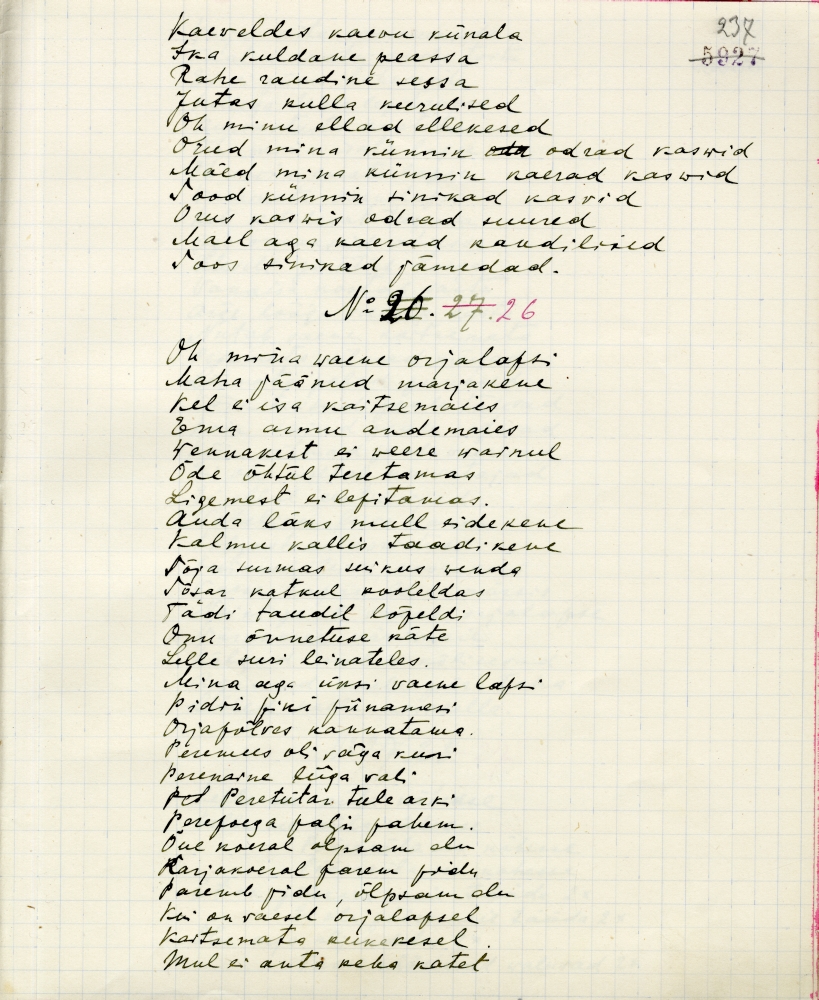 237
5927
Kaeveldes kaevu künala
Ika kuldane peassa
Rahe raudine sessa
Jutas kulla keerulised
Oh minu ellad ellekesed
Orud mina künnin oda odrad kaswid
Mäed mina künnin kaerad kaswid
Sood künnin sinikad kasvid
Orus kaswis odrad suured
Mael aga kaerad kandilised
Soos sinikad jämedad.
No 26. 27. 26
Oh mina waene orjalapsi
Maha jäänud marjakene
Kel ei isa kaitsemaies
Ema armu andemaies
Wennakest ei weere wainul
Õde õhtul teretamas
Ligemest ei lepitamas.
Auda läks mull eidekene
Kalmu kallis taadikene
Sõja surmas suikus wenda
Sõsar katkul kooleldas
Tädi taudil lõpeldi
Onu õnnetuse käte
Lelle suri leinateles.
Mina aga üksi vaene lapsi
Pidin piki piinamesi
Orjapõlves kannatama.
Peremees oli väga kuri
Perenaine liiga vali
Peretütar tule arki
Perepoega palju pahem.
Õue koeral olpsam elu
Karjakoeral parem pidu
Paremb pidu, õlpsam elu
Kui on vaesel orjalapsel
Kaitsemata kukekesel.
Mul ei anta keha katet